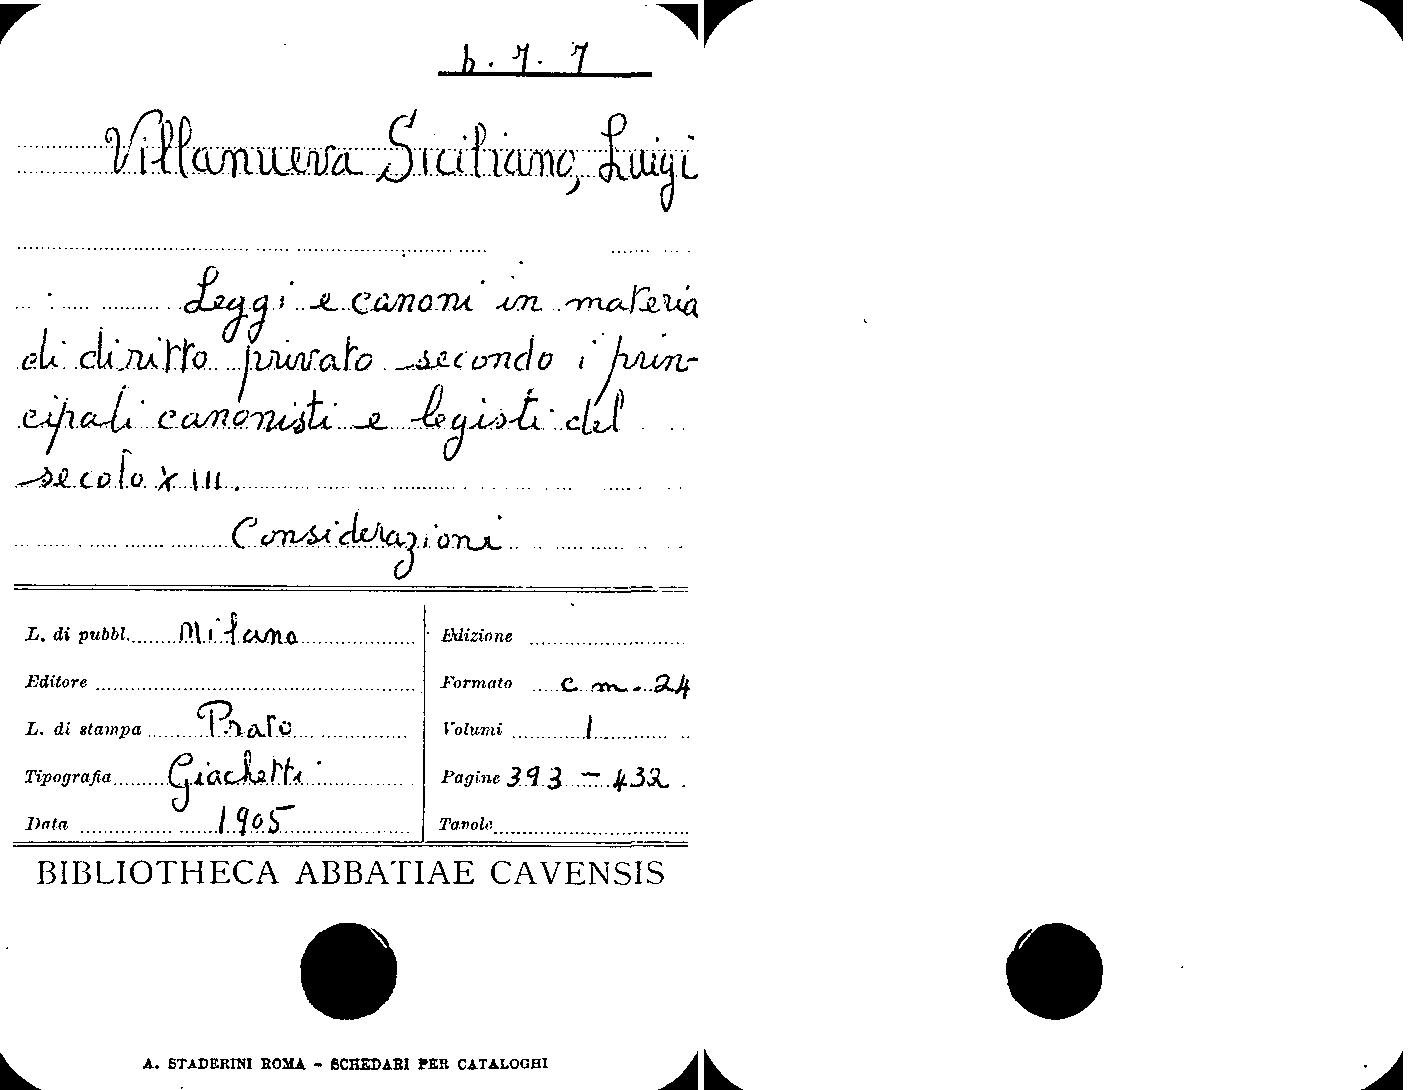 b. 7. 7
Villanueva Siciliano, Luigi
Leggi e canoni in materia
di diritto privato secondo i prin-
cipali canonisti e legisti del
secolo XIII.
Considerazioni
L. di pubbl. Milano
Editore
L. di stampa Prato
Tipografia Giachetti
Data 1905
Edizione
Formato cm. 24
Volumi 1
Pagine 393 - 432
Tavole
BIBLIOTHECA ABBATIAE CAVENSIS
A. STADERINI ROMA - SCHEDARI PER CATALOGHI